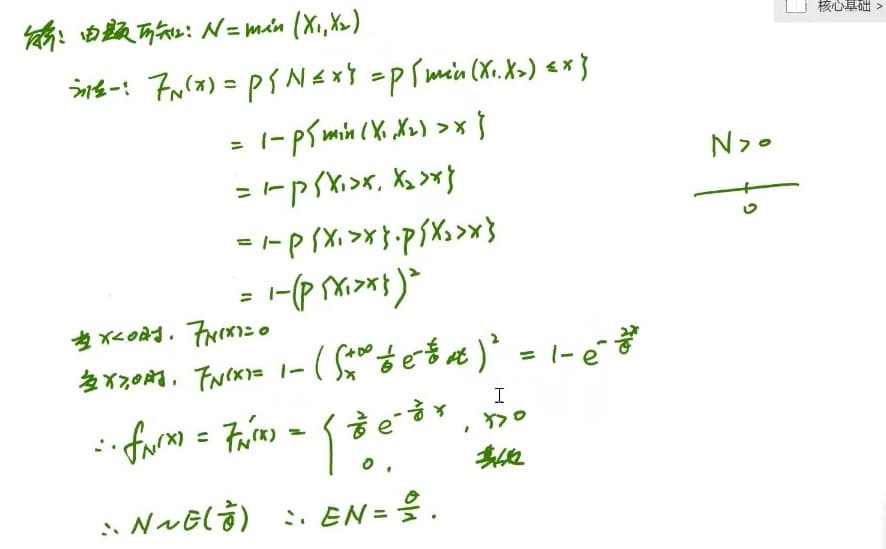 核心基础 >
解：由题可知：N = min (X₁,X₂)
法一：F_N(x) = P{N ≤ x} = P{min(X₁,X₂) ≤ x}
= 1-P{min(X₁,X₂) > x}
N > 0
= 1-P{X₁>x, X₂>x}
0
= 1-P{X₁>x}·P{X₂>x}
= 1-(P{X₁>x})²
当x<0时, F_N(x)=0
当x≥0时, F_N(x)= 1-(∫ₓ^{+∞} 1/θ e^{-t/θ} dt)² = 1-e^{-2x/θ}
∴ f_N(x) = F_N'(x) = { 2/θ e^{-2/θ x}, x>0
0, 其他
∴ N~E(2/θ) ∴ EN = θ/2.